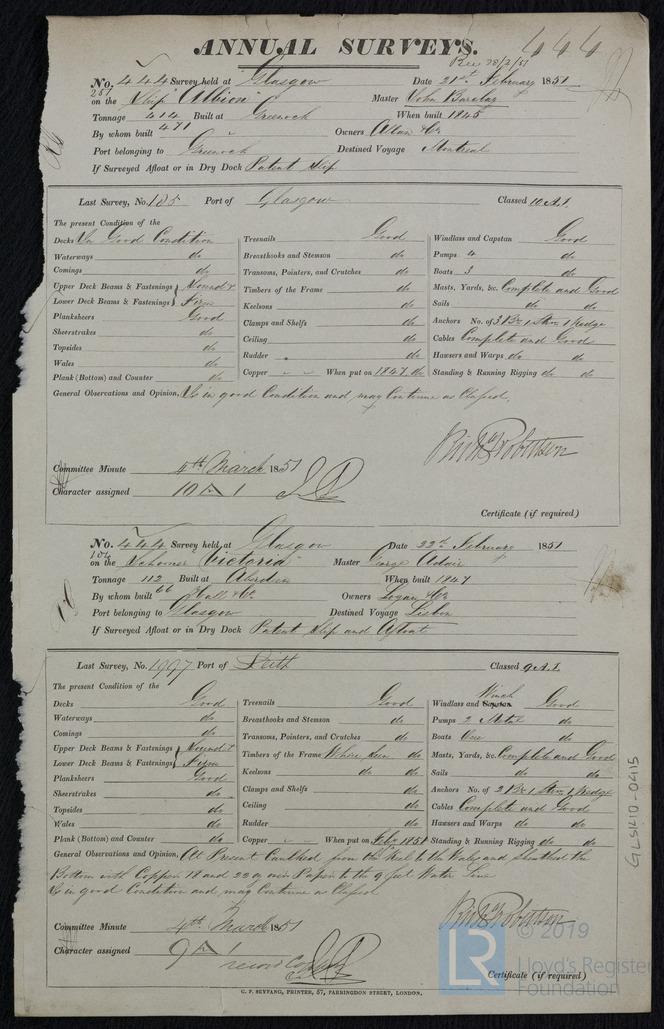 ANNUAL SURVEYS.
444
Rec 28/2/51
No. 444 Survey held at Glasgow Date 21st February 1851
251
on the Ship "Albion" Master John Barclay
Tonnage 414 Built at Greenock When built 1845
471
By whom built " Owners Allan & Co
Port belonging to Greenock Destined Voyage Montreal
If Surveyed Afloat or in Dry Dock Patent Slip
Last Survey, No. 185 Port of Glasgow Classed 10 A.1.
The present Condition of the
Decks In Good Condition
Waterways do
Comings do
Upper Deck Beams & Fastenings } Sound &
Lower Deck Beams & Fastenings } Firm
Planksheers Good
Sheerstrakes do
Topsides do
Wales do
Plank (Bottom) and Counter do
Treenails Good
Breasthooks and Stemson do
Transoms, Pointers, and Crutches do
Timbers of the Frame do
Keelsons do
Clamps and Shelfs do
Ceiling do
Rudder do
Copper When put on 1847 do
Windlass and Capstan Good
Pumps 4 do
Boats 3 do
Masts, Yards, &c. Complete and Good
Sails do do
Anchors No. of 3 Br 1 Strm 1 Kedge
Cables Complete and Good
Hawsers and Warps do do
Standing & Running Rigging do do
General Observations and Opinion, Is in good Condition and may Continue as Classed.
Robertson
Committee Minute 4th March 1851
Character assigned 10 A 1
Certificate (if required)
No. 444 Survey held at Glasgow Date 22d February 1851
106
on the Schooner "Victoria" Master George Adair
Tonnage 112 Built at Aberdeen When built 1847
66
By whom built Hall & Co Owners Logan & Co
Port belonging to Glasgow Destined Voyage Lisbon
If Surveyed Afloat or in Dry Dock Patent Slip and Afloat
Last Survey, No. 1997 Port of Leith Classed 9 A.1.
The present Condition of the
Decks Good
Waterways do
Comings do
Upper Deck Beams & Fastenings } Sound &
Lower Deck Beams & Fastenings } Firm
Planksheers Good
Sheerstrakes do
Topsides do
Wales do
Plank (Bottom) and Counter do
Treenails Good
Breasthooks and Stemson do
Transoms, Pointers, and Crutches do
Timbers of the Frame Where Seen do
Keelsons do do
Clamps and Shelfs do
Ceiling do
Rudder do
Copper When put on Feby 1851
Winch
Windlass and Capstan Good
Pumps 2 Metal do
Boats One do
Masts, Yards, &c. Complete and Good
Sails do do
Anchors No. of 2 Br 1 Strm 1 Kedge
Cables Complete and Good
Hawsers and Warps do do
Standing & Running Rigging do do
General Observations and Opinion, At Present Caulked from the Keel to the Wales and Sheathed the
Bottom with Copper 18 and 22 oz over Paper to the 9 feet Water Line
Is in good Condition and may Continue as Classed
Robertson
Committee Minute 4th March 1851
Character assigned 9 A 1
Certificate (if required)
C. F. SEYFANG, PRINTER, 57, FARRINGDON STREET, LONDON.
GLS1210-0415
© 2019
LR
Lloyd's Register
Foundation